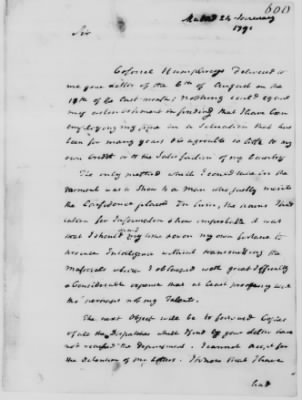 600
Madrid 24 January
1791
Sir
Colonel Humphreys delivered to
me your letter of the 6th of August on the
18th of the last month; nothing could equal
my astonishment in finding that I have been
employing my time in a situation that has
been for many years disagreeable so little to my
own credit or to the satisfaction of my Country
The only method which I could take for the
moment was to shew to a man who justly merits
the Confidence placed in him, the pains I had
taken for Information & how improbable it was
that I should my time and on my own fortune to
procure Intelligence without transmitting the
Materials which I obtained with great difficulty
& Considerable expence that at least prooves my zeal
not my Talents.
The next Object will be to forward Copies
of all the dispatches which I find by your letter have
not reached the Department. I cannot account for
the detention of my letters. I know that I have